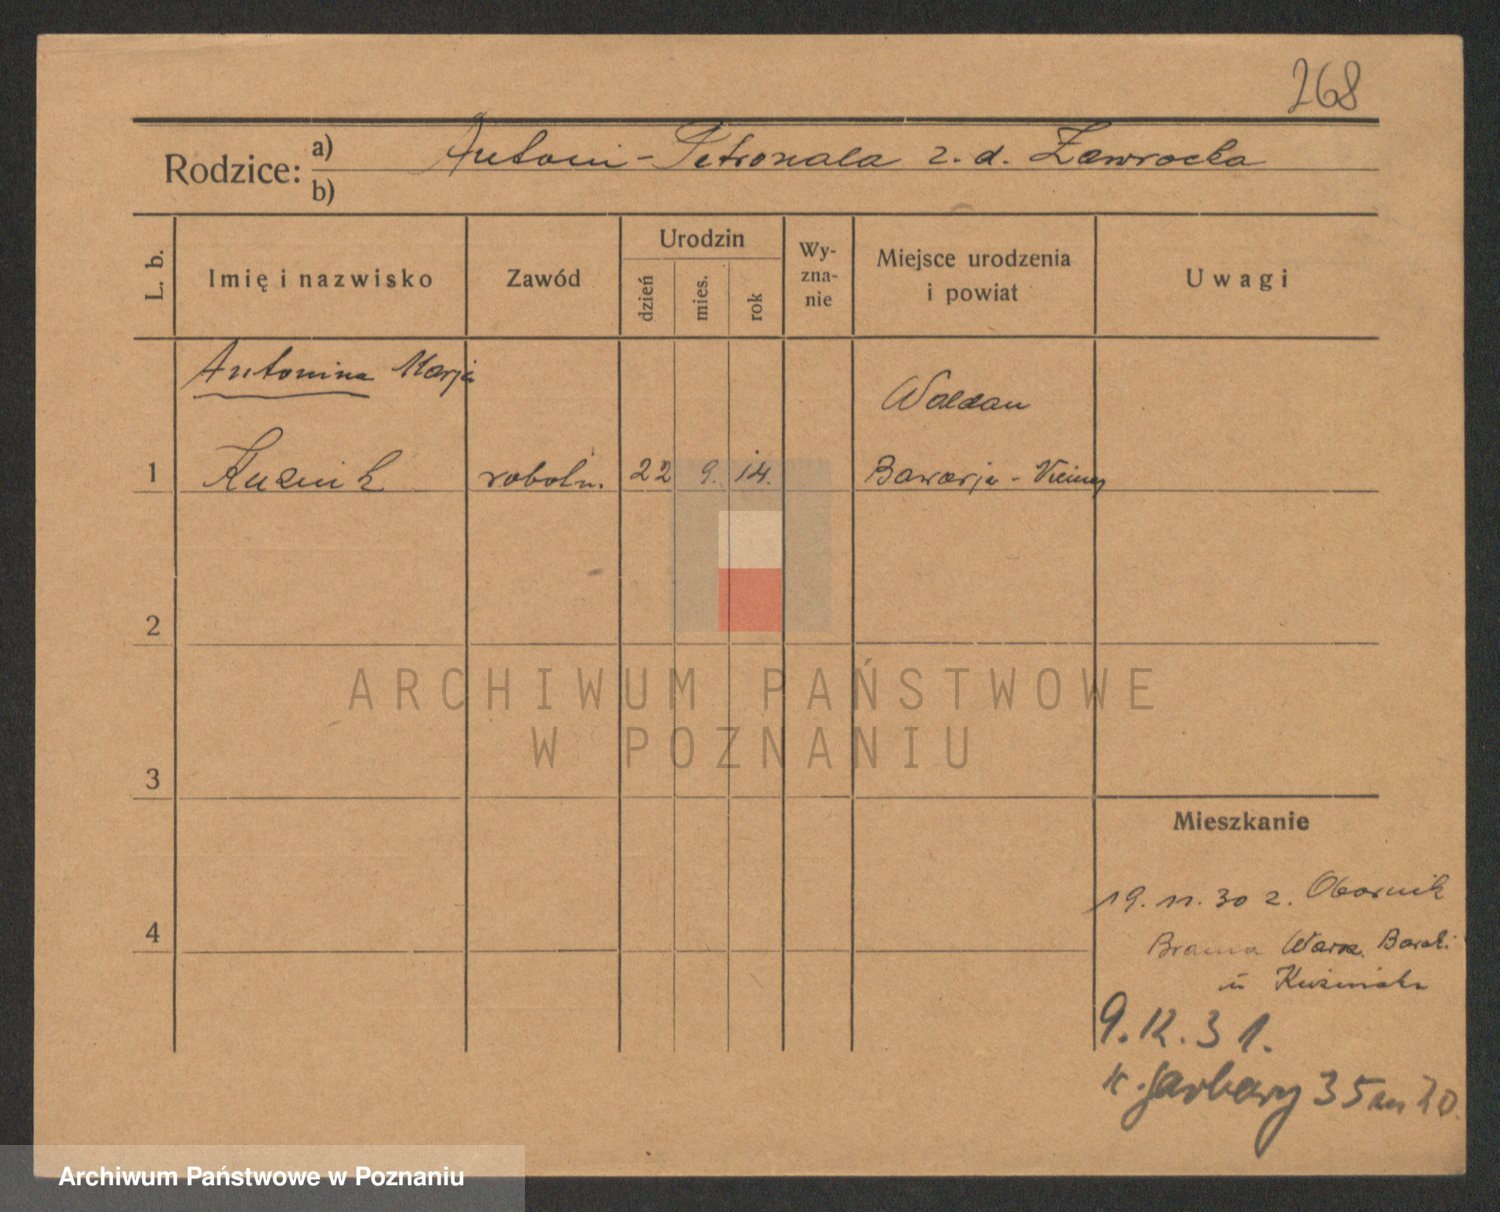 268
Rodzice: a) Antoni - Petronela z. d. Zawrocka
b)
L. b.
Imię i nazwisko
Zawód
Urodzin
dzień
mies.
rok
Wy-
zna-
nie
Miejsce urodzenia
i powiat
Uwagi
Antonina Marja
Waldau
1 Kuznik robotn. 22 9. 14. Bawarja - Niemcy
2
3
4
Mieszkanie
19. 11. 30 z. Obornik
Brama Warsz. Barak.
u
9.12.31.
Garbary 35 m 20.
ARCHIWUM PAŃSTWOWE
W POZNANIU
Archiwum Państwowe w Poznaniu